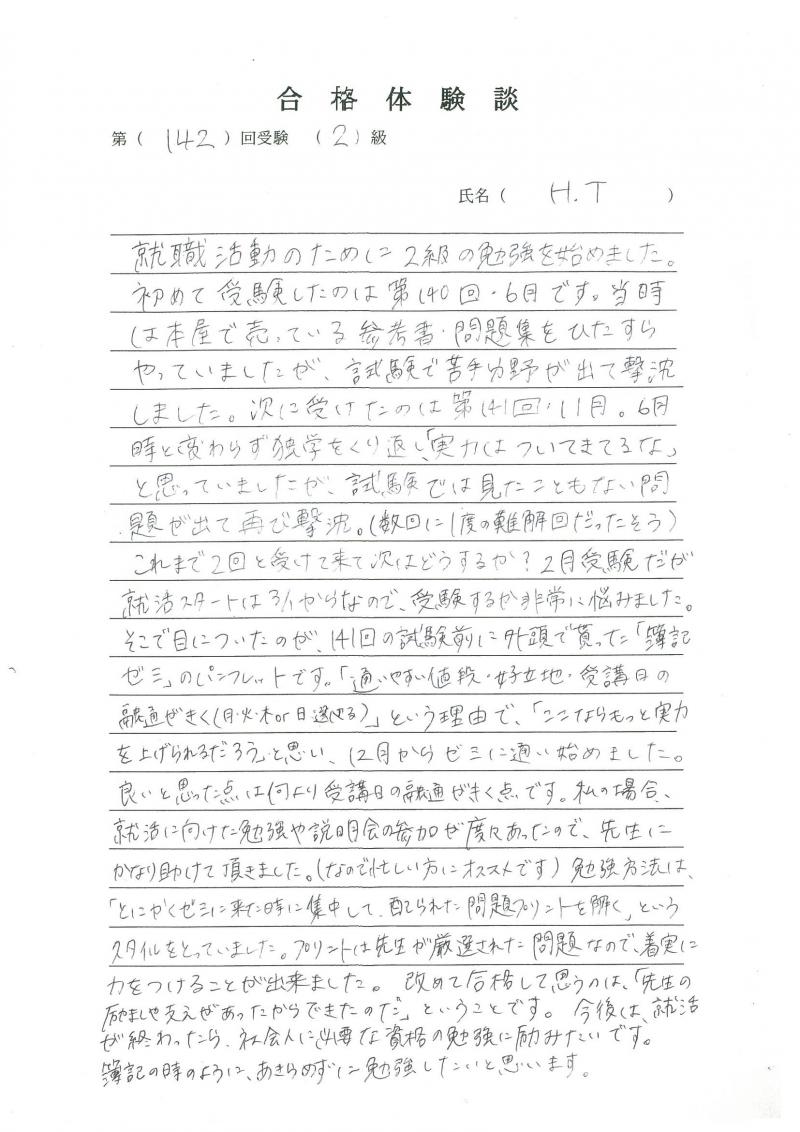 合格体験談
第（ 142 ）回受験 （ 2 ）級
氏名（ H.T ）
就職活動のために2級の勉強を始めました。
初めて受験したのは第140回・6月です。当時
は本屋で売っている参考書・問題集をひたすら
やっていましたが、試験で苦手分野が出て撃沈
しました。次に受けたのは第141回・11月。6月
時と変わらず独学をくり返し、「実力はついてきてるな」
と思っていましたが、試験では見たこともない問
題が出て再び撃沈。(数回に1度の難解回だったそう)
これまで2回と受けて来て次はどうするか？2月受験だが
就活スタートは3/1からなので、受験するか非常に悩みました。
そこで目についたのが、141回の試験前に外頭で貰った「簿記
ゼミ」のパンフレットです。「通いやすい値段・好立地・受講日の
融通がきく(月・火・木or日選べる)」という理由で、「ここならもっと実力
を上げられるだろう」と思い、12月からゼミに通い始めました。
良いと思った点は何より受講日の融通がきく点です。私の場合、
就活に向けた勉強や説明会の参加が度々あったので、先生に
かなり助けて頂きました。(なので忙しい方にオススメです) 勉強方法は、
「とにかくゼミに来た時に集中して、配られた問題プリントを解く」という
スタイルをとっていました。プリントは先生が厳選された問題なので、着実に
力をつけることが出来ました。 改めて合格して思うのは、「先生の
励ましや支えがあったからできたのだ」ということです。 今後は、就活
が終わったら、社会人に必要な資格の勉強に励みたいです。
簿記の時のように、あきらめずに勉強したいと思います。